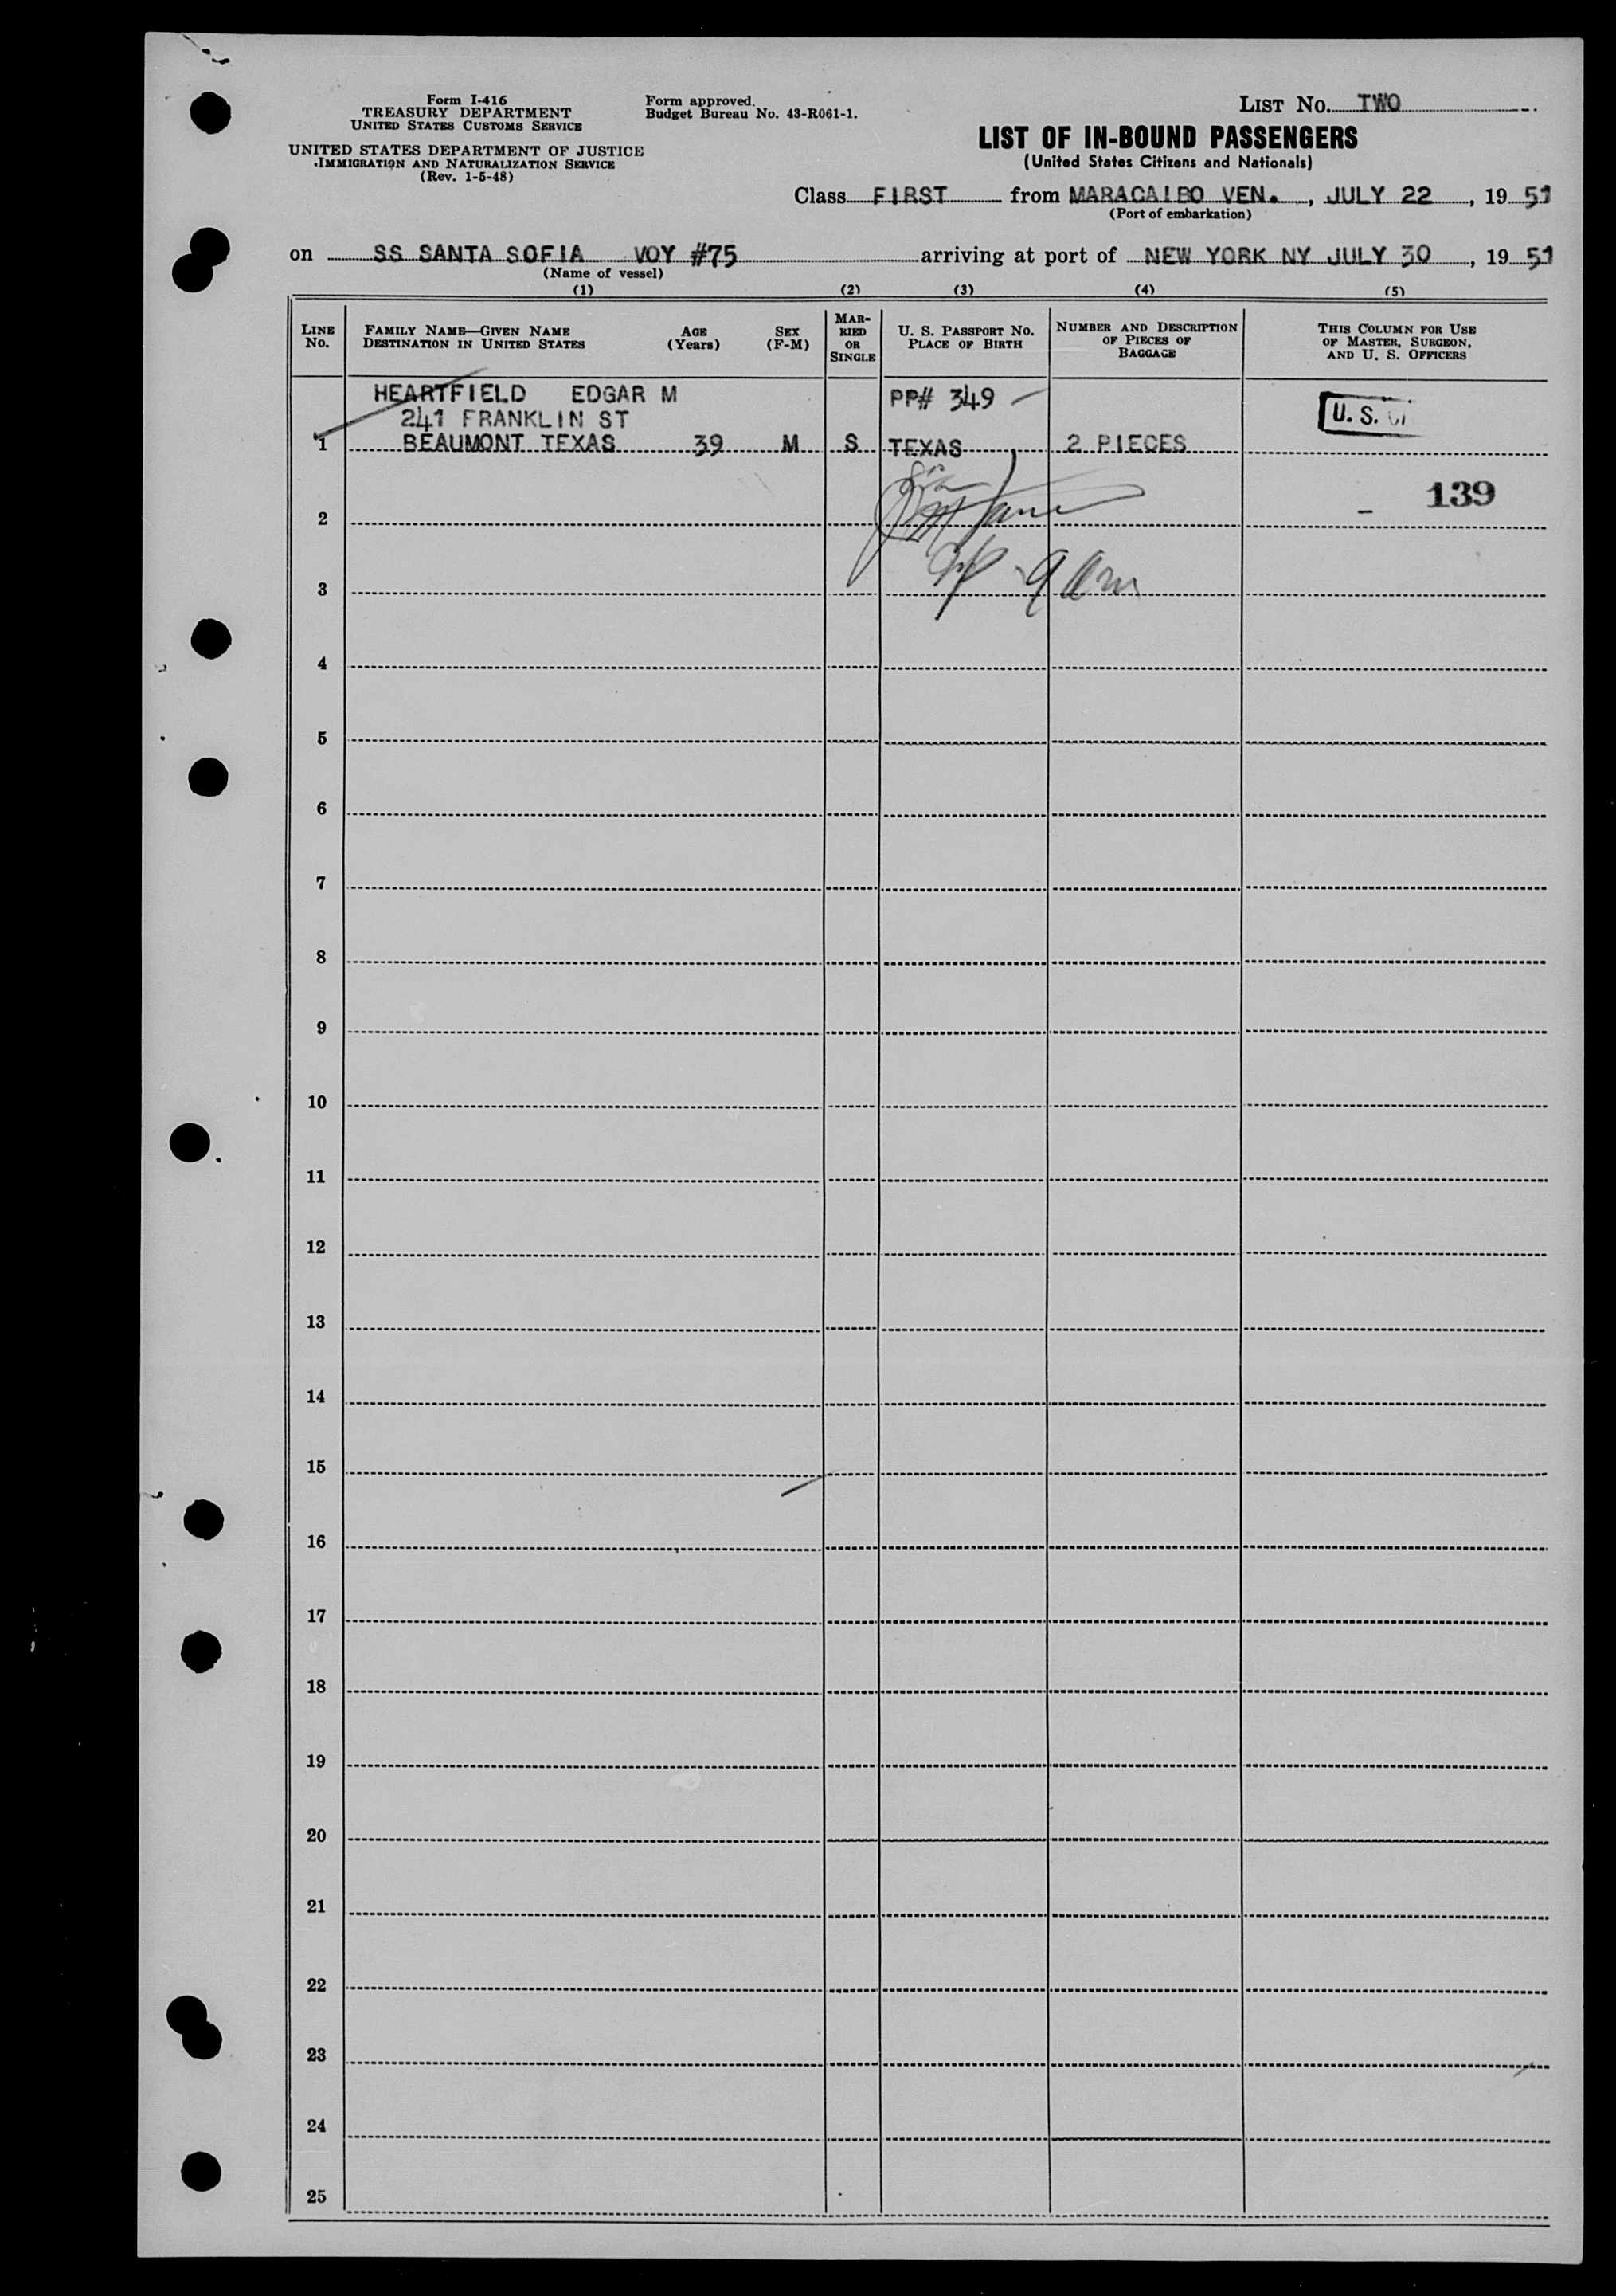 Form I-416
TREASURY DEPARTMENT
UNITED STATES CUSTOMS SERVICE
UNITED STATES DEPARTMENT OF JUSTICE
IMMIGRATION AND NATURALIZATION SERVICE
(Rev. 1-5-48)
Form approved.
Budget Bureau No. 43-R061-1.
LIST NO. TWO
LIST OF IN-BOUND PASSENGERS
(United States Citizens and Nationals)
Class FIRST from MARACAIBO VEN., JULY 22, 1951
(Port of embarkation)
on SS SANTA SOFIA VOY #75 arriving at port of NEW YORK NY JULY 30, 1951
(Name of vessel)
(1) (2) (3) (4) (5)
LINE NO.
FAMILY NAME—GIVEN NAME AGE SEX
DESTINATION IN UNITED STATES (Years) (F-M)
MAR-
RIED
OR
SINGLE
U. S. PASSPORT NO.
PLACE OF BIRTH
NUMBER AND DESCRIPTION
OF PIECES OF
BAGGAGE
THIS COLUMN FOR USE
OF MASTER, SURGEON,
AND U. S. OFFICERS
HEARTFIELD EDGAR M PP# 349
241 FRANKLIN ST U. S.
1 BEAUMONT TEXAS 39 M S TEXAS 2 PIECES
139
2
3
4
5
6
7
8
9
10
11
12
13
14
15
16
17
18
19
20
21
22
23
24
25